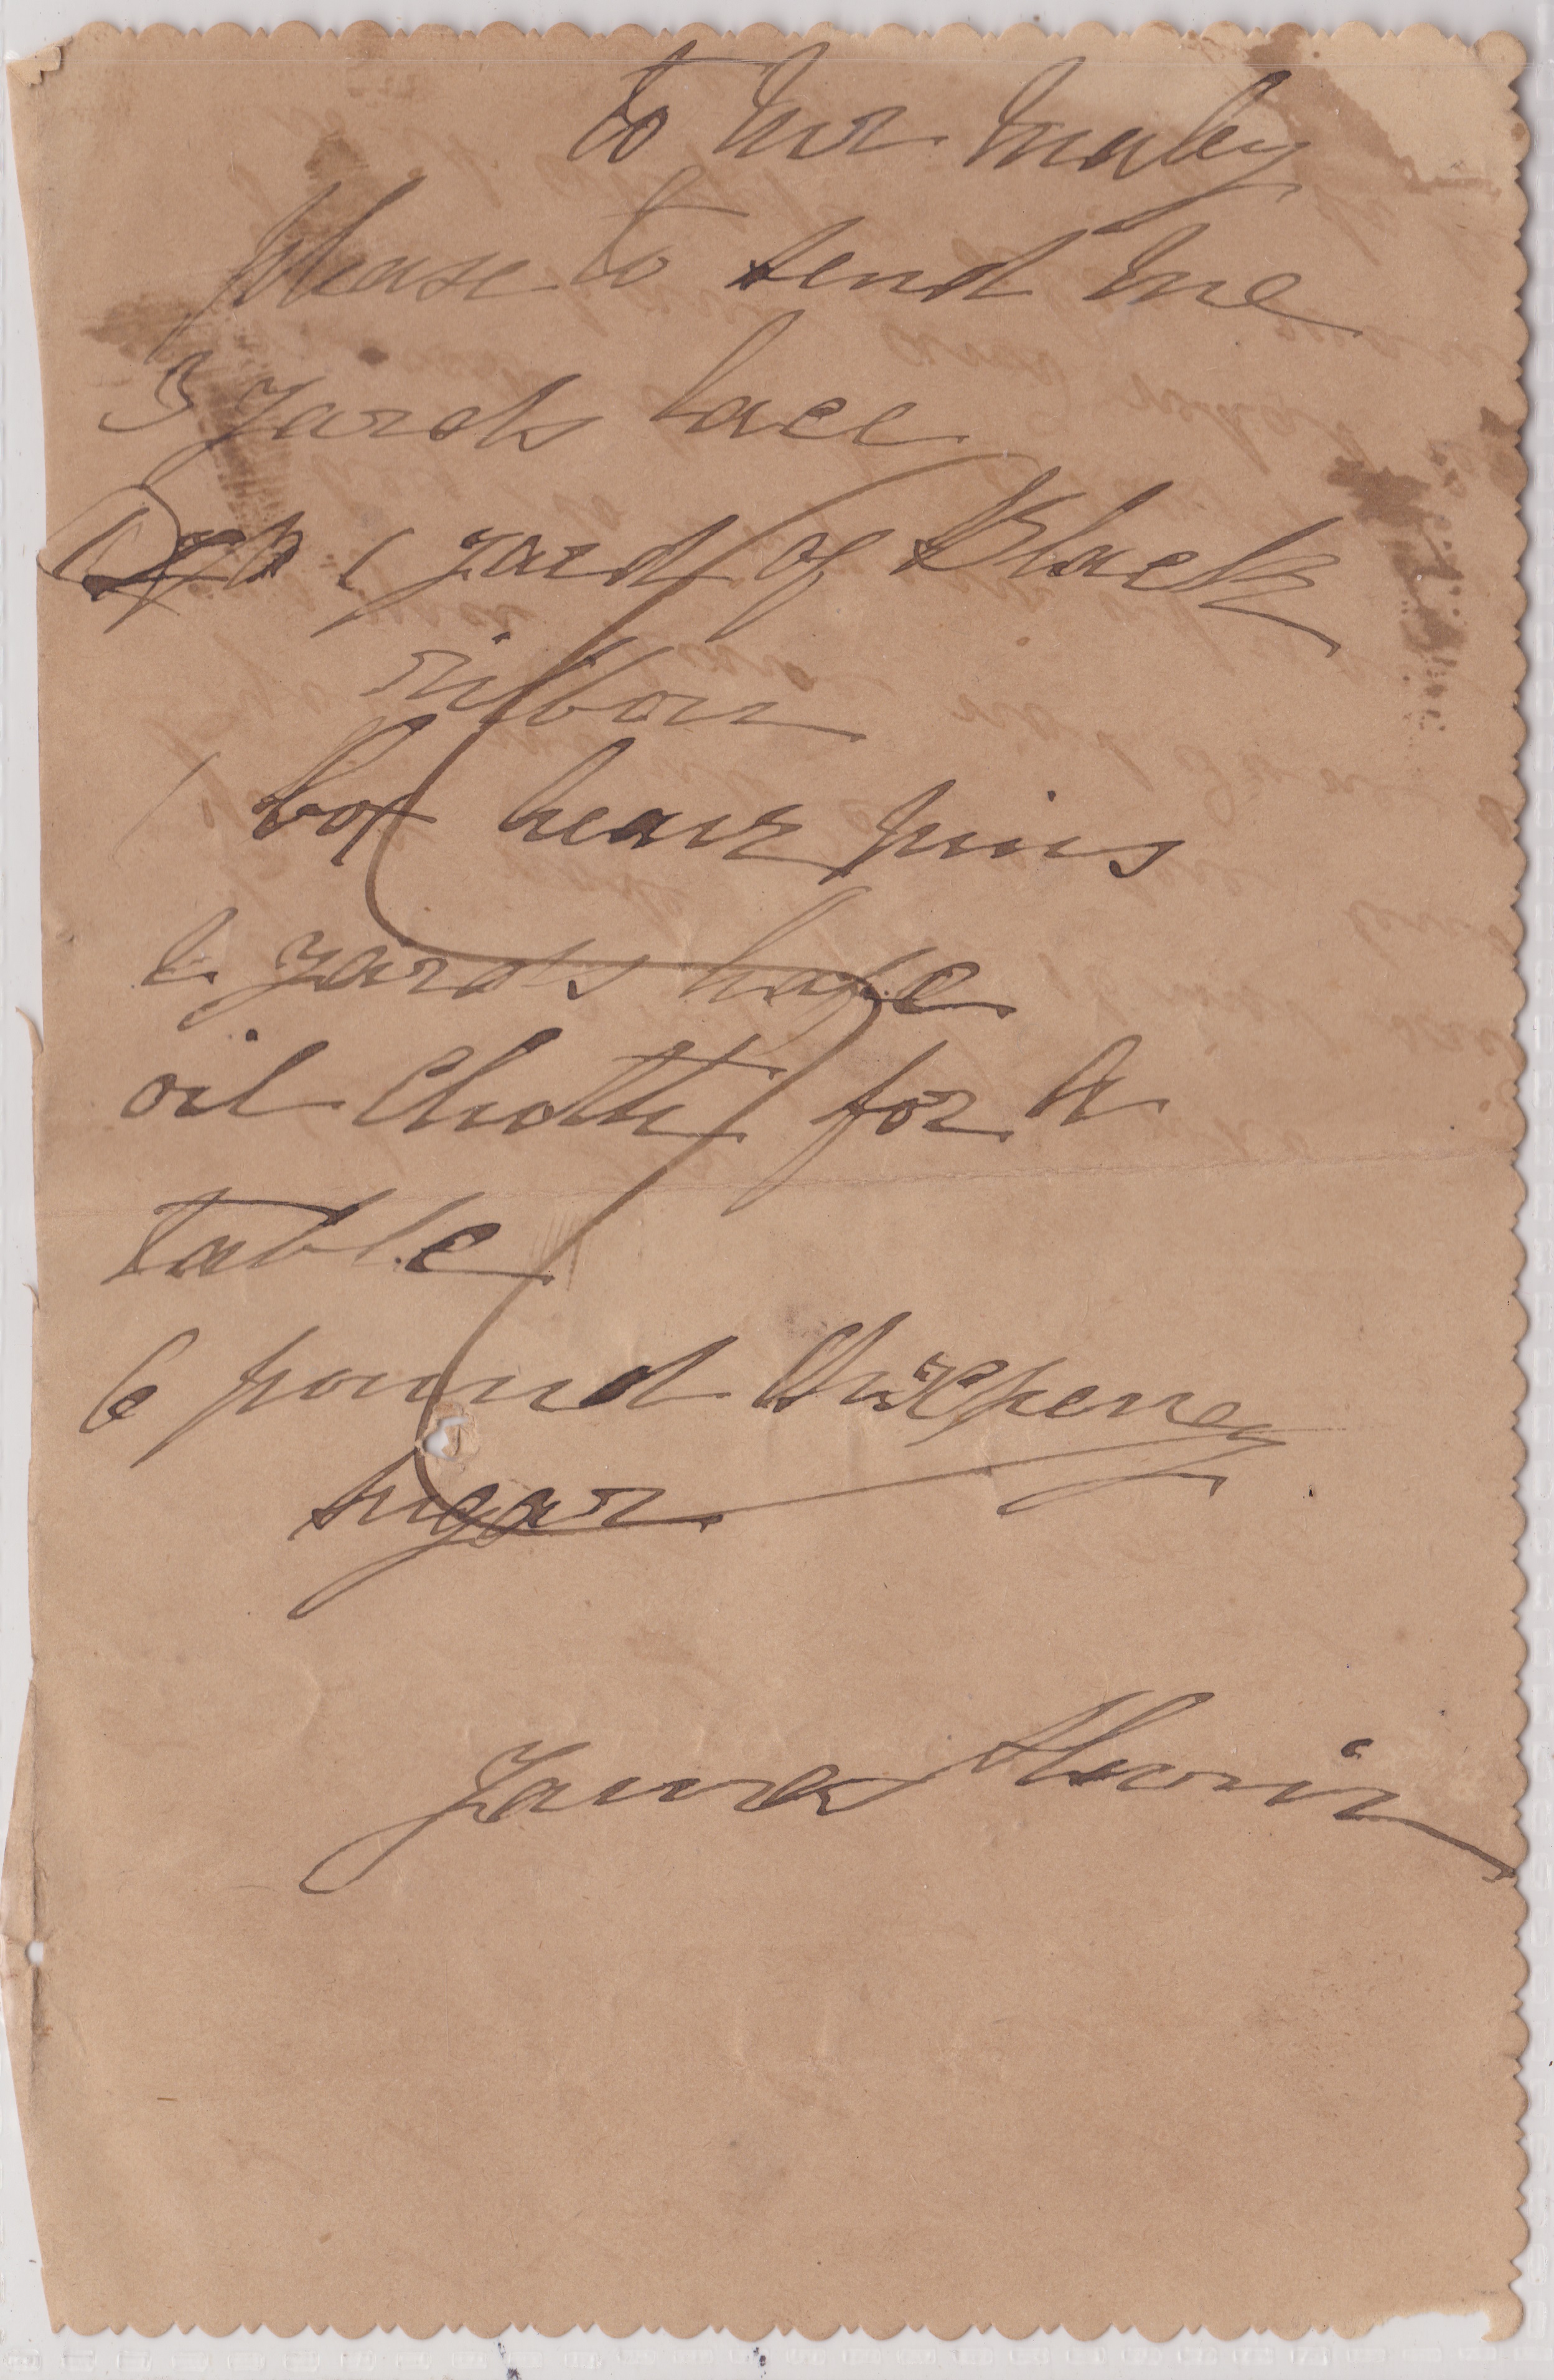 to mr maley
please to send me
3 yards lace
1 yard of Black
ribbon
1 box hear pins
yards hafe
oil Cloth for A
table
6 pound
sugar
James